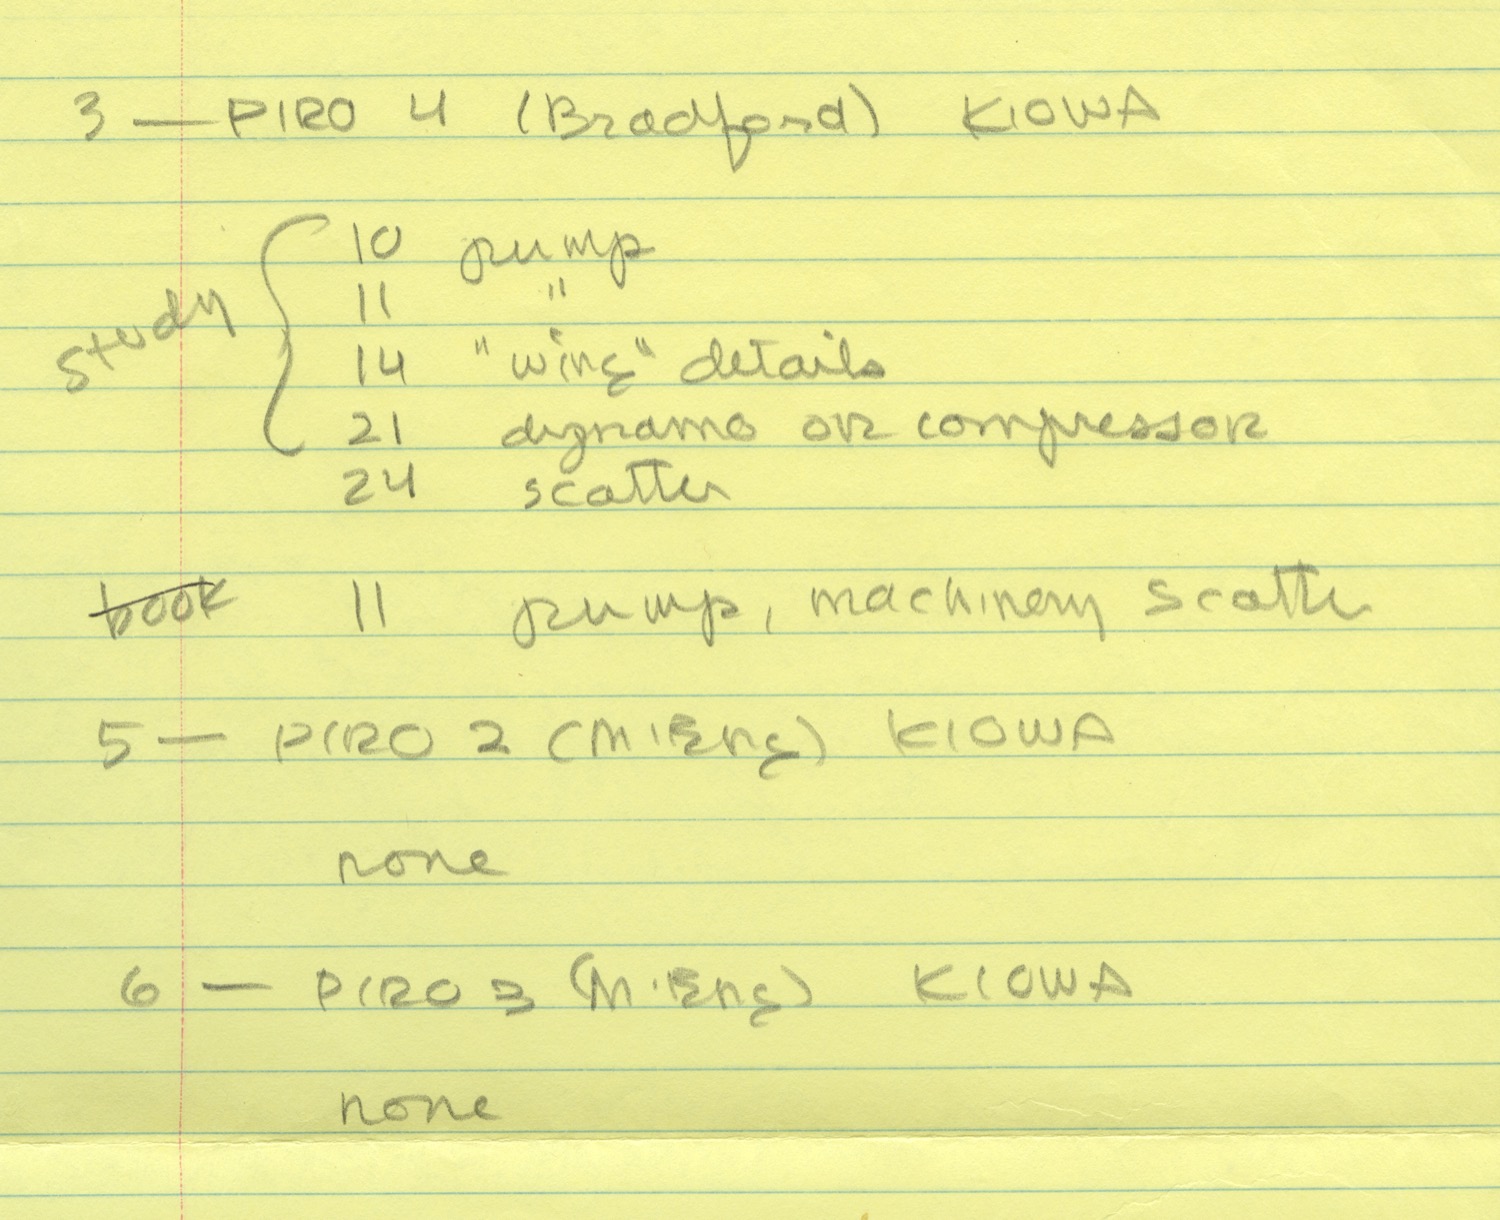 3 — PIRO 4 (Bradford) KIOWA
study { 10 pump
11 "
14 "wing" details
21 dynamo OR compressor
24 scatter
book 11 pump, machinery scatter
5 — PIRO 2 (M.Eng) KIOWA
none
6 — PIRO 3 (M.Eng) KIOWA
none